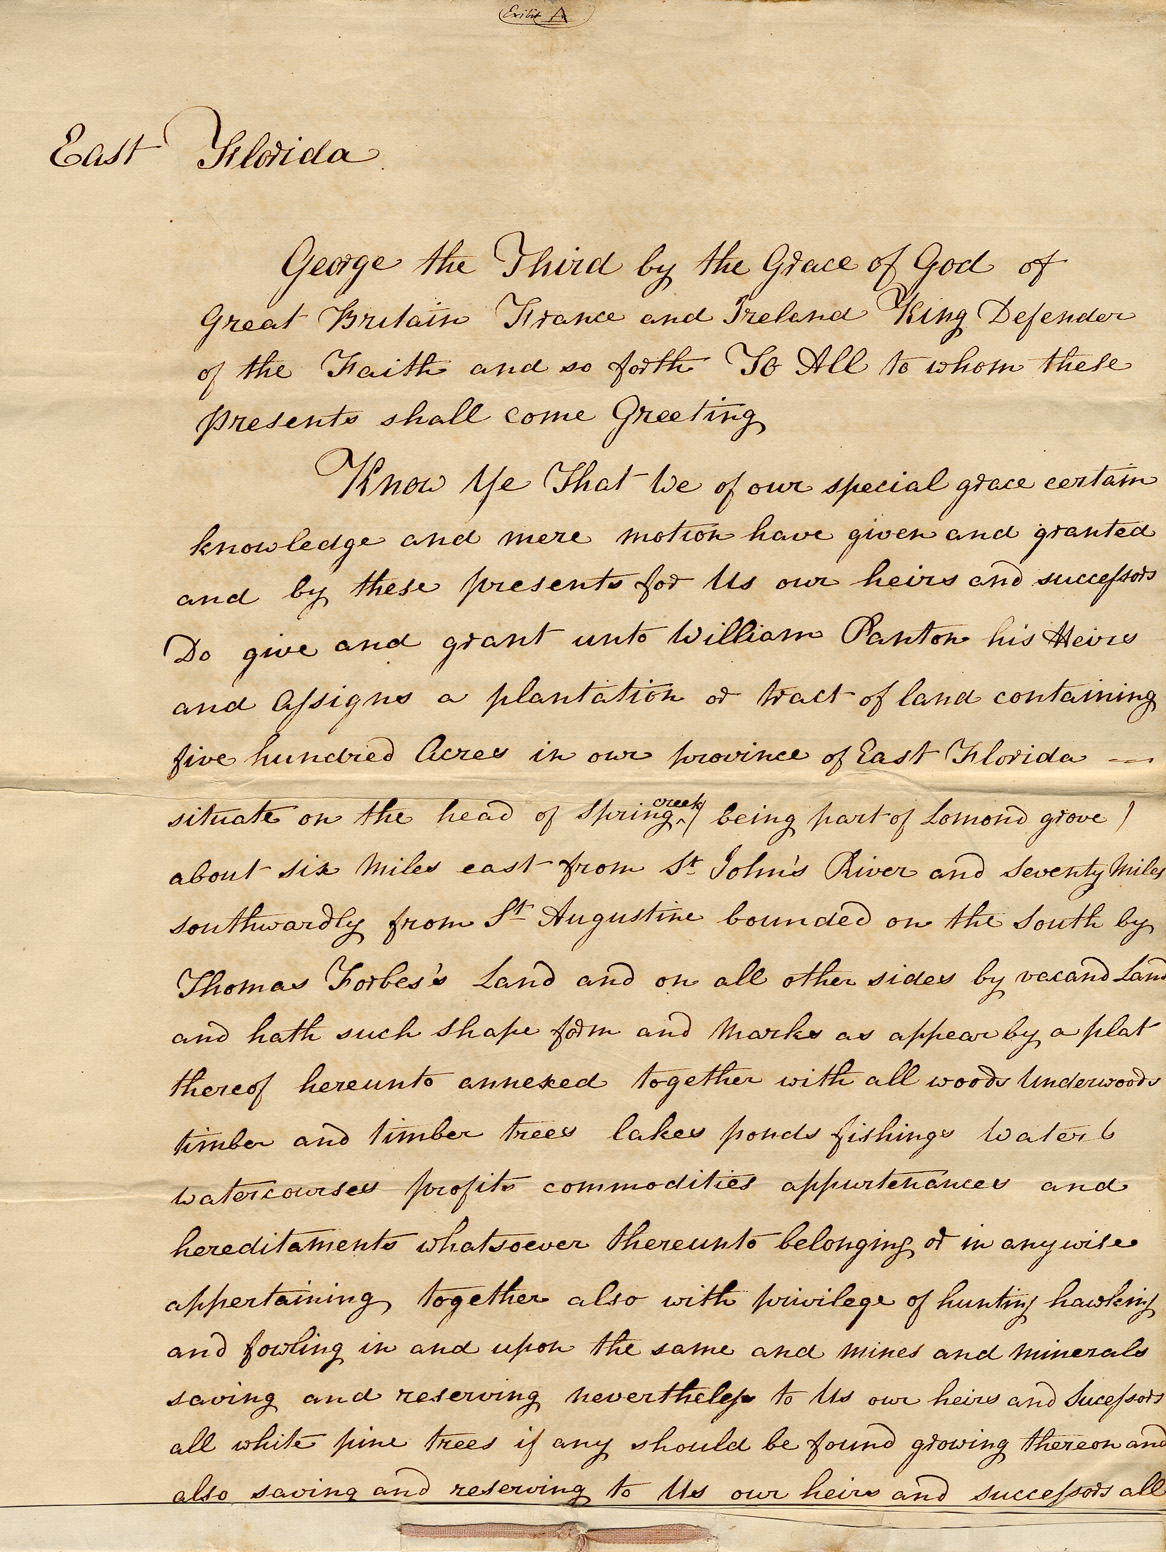 Exibit A
East Florida
George the Third by the Grace of God of
Great Britain France and Ireland King Defender
of the Faith and so forth To All to whom these
presents shall come Greeting
Know Ye That We of our special grace certain
knowledge and mere motion have given and granted
and by these presents for Us our heirs and successors
Do give and grant unto William Panton his Heirs
and Assigns a plantation or tract of land containing
five hundred Acres in our province of East Florida —
situate on the head of Spring creek ( being part of Lomond grove )
about six Miles east from St John's River and Seventy Miles
southwardly from St Augustine bounded on the South by
Thomas Forbes's Land and on all other sides by vacand Land
and hath such Shape form and Marks as appear by a plat
thereof hereunto annexed together with all woods Underwoods
timber and timber trees lakes ponds fishings Waters
watercourses profits commodities appurtenances and
hereditaments whatsoever thereunto belonging or in anywise
appertaining together also with privilege of hunting hawking
and fowling in and upon the same and mines and minerals
saving and reserving nevertheless to Us our heirs and Sucessors
all white pine trees if any should be found growing thereon and
also saving and reserving to Us our heirs and successors all